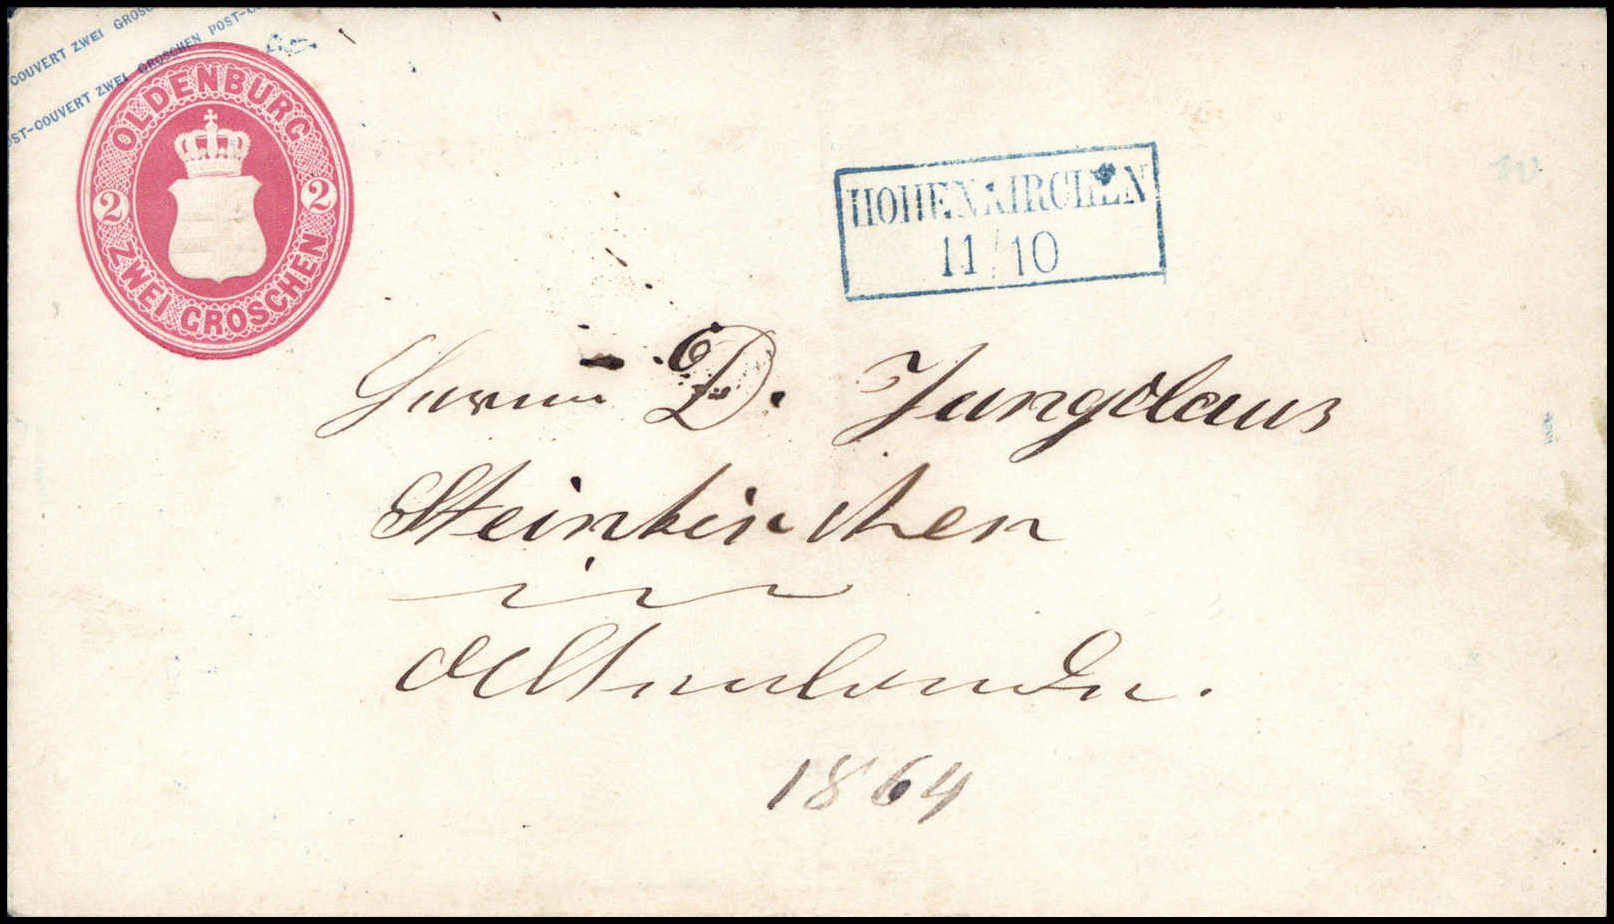 COUVERT ZWEI GROSC
OST-COUVERT ZWEI GROSCHEN POST-C
OLDENBURG
2 2
ZWEI GROSCHEN
HOHENKIRCHEN
11/10
Herrn D. Jungclaus
Steinkirchen
in
Altenlande.
1864